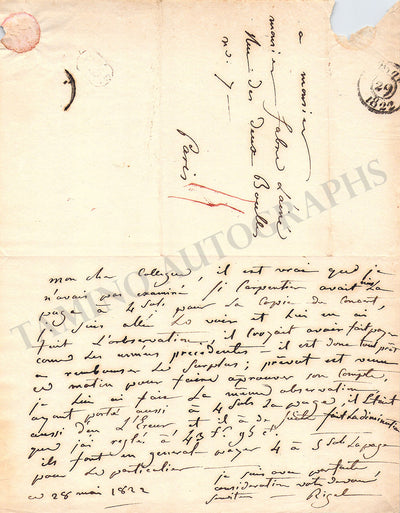 a monsieur
monsieur fabre l'ainé
Rue des deux Boules
no. 7
Paris
29
1822
TAMINO AUTOGRAPHS
mon cher Collegue, il est vrai que je
n'avais pas examiné si Carpentier avait mis La
page à 4 sols pour La Copie du
je suis allé Le voir et Lui en ai
fait L'observation, il croyait avoir fait payer
comme Les années precedentes - il est donc tout prêt
a rembourser Le Surplus; prevost est venu
ce matin pour faire aprouver son Compte,
je Lui ai fait La même observation,
ayant porté aussi à 4 sols La page, il était
aussi dans L'Erreur et il a de suite fait La diminution
que j'ai reglé à 43 fs 95 cs.
ils font en general payer 4 à 5 sols La page
pour Le particulier
je suis avec parfaite
consideration votre devoué
serviteur Rigel
ce 28 mai 1822